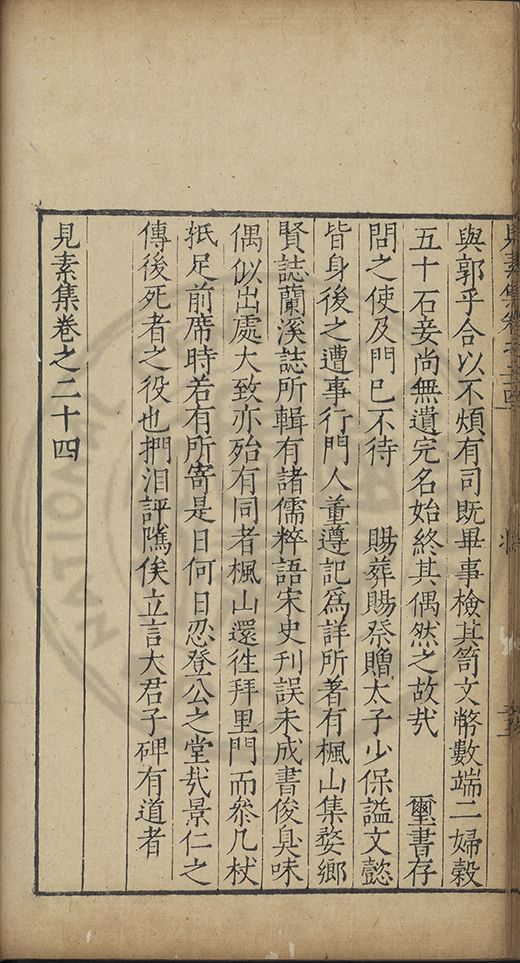 與郭乎合以不煩有司既畢事檢其笥文幣數端二婦穀
五十石妾尚無遺完名始終其偶然之故㢤 璽書存
問之使及門已不待 賜葬賜祭贈太子少保謚文懿
皆身後之遭事行門人董遵記爲詳所著有楓山集婺鄉
賢誌蘭溪誌所輯有諸儒粹語宋史刊誤未成書俊臭味
偶似出處大致亦殆有同者楓山還徃拜里門而叅几杖
抵足前席時若有所寄是日何日忍登公之堂㢤景仁之
傳後死者之役也捫泪評隲俟立言大君子碑有道者
見素集卷之二十四